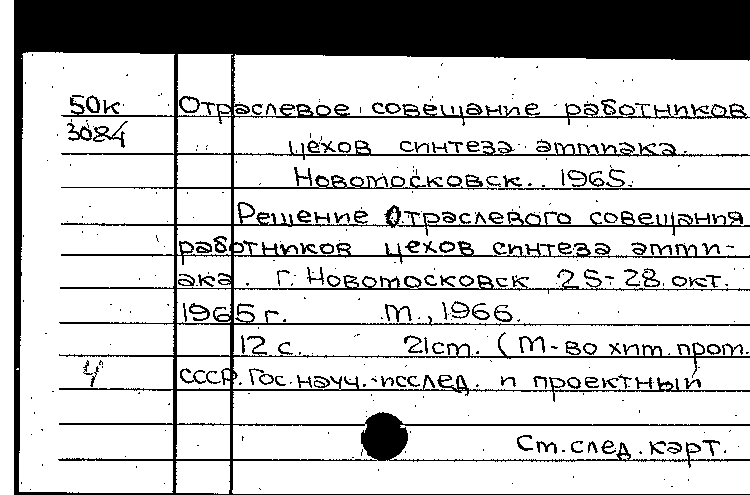 50к Отраслевое совещание работников
3084 цехов синтеза аммиака.
Новомосковск. 1965.
Решение Отраслевого совещания
работников цехов синтеза амми-
ака. г. Новомосковск 25-28 окт.
1965 г. М., 1966.
12 с. 21 см. (М-во хим. пром.
4 СССР. Гос. науч.-исслед. и проектный
См. след. карт.